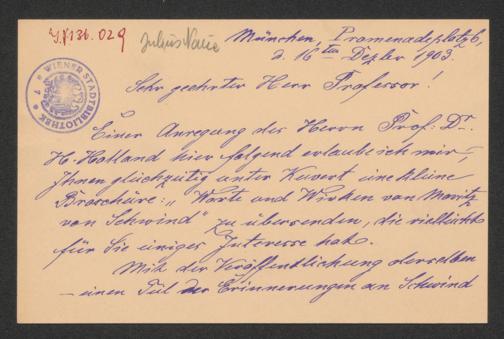 I.N. 136.029
Julius Naue
München, Promenadeplatz 6,
d. 16ten Dezbr 1903.
WIENER STADTBIBLIOTHEK
Sehr geehrter Herr Professor!
Einer Anregung des Herrn Prof. Dr.
H. Holland hier folgend erlaube ich mir,
Ihnen gleichzeitig unter Kuvert eine kleine
Broschüre: „Worte und Wirken von Moritz
von Schwind" zu übersenden, die vielleicht
für Sie einiges Interesse hat.
Mit der Veröffentlichung derselben
— einen Teil der Erinnerungen an Schwind